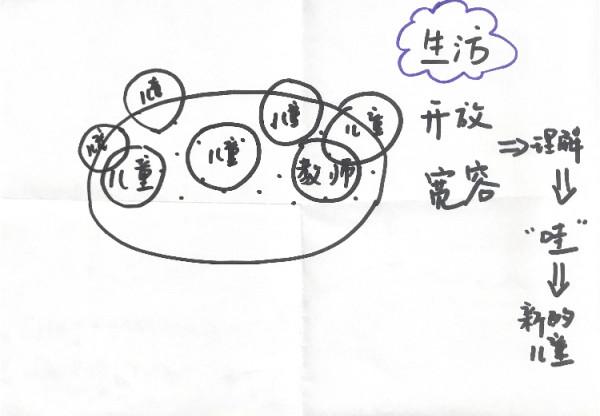 生活
儿童
儿童
儿童
儿童
儿童
儿童
教师
开放
宽容
⇒理解
⇓
"哇"
⇓
新的
儿童